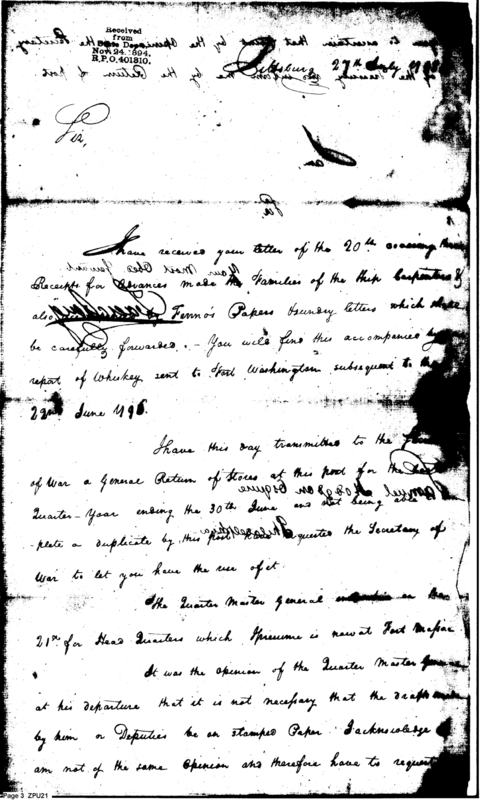 Received
from
Nov. 24. 1894.
R.P.O. 401810.
Pittsburg 27th July 1798
Sir,
I have received your letter of the 20th covering three
Receipts for Advances made the Families of the Ship Carpenters &
also Fenno's Papers & sundry letters which shall
be carefully forwarded. – You will find this accompanied by a
report of Whiskey sent to Fort Washington subsequent to the
22nd June 1798.
I have this day transmitted to the
of War a General Return of Stores at this post for the
Quarter-Year ending the 30th June and not being able
plete a duplicate by this post have requested the Secretary of
War to let you have the use of it
The Quarter Master General on the
21st for Head Quarters which I presume is now at Fort Massac
It was the opinion of the Quarter Master General
at his departure that it is not necessary that the drafts made
by him or Deputies be on stamped Paper I acknowledge I
am not of the same opinion and therefore have to request
Page 3 ZPU21